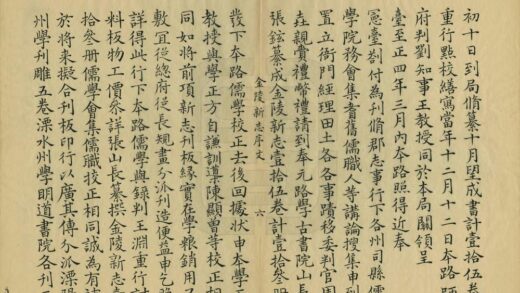 初十日到局脩纂十月望成書計壹拾伍卷
重行點校繕寫當年十二月十二日夲路
府判劉知事王教授同於夲局關領呈
臺至正四年三月內夲路照得近奉
憲臺劄付為刋脩郡志事行下各州司縣儒
學院務會集耆舊儒職人等講論搜集申到
置立衙門經理田土各各事蹟移委判官周
垚親賫禮幣禮請到奉元路學古書院山長
張鉉纂成金陵新志壹拾伍卷計壹拾叁冊
金陵新志序文 六
發下夲路儒學校正去後回據狀申夲學
教授與學正方自謙訓導陳顯曾等校正相
同如將前項新志刋板縁實在學粮銷用
敷宜従總府従長規畫分派刋造便益申乞
詳得此行下夲路儒學與錄判王淵重行計
料板物工價叅詳張山長纂拱金陵新志
拾叁冊儒學會集儒職校正相同誠為有
於将来擬合刋板印行以廣其傳分派溧
州學刋雕五卷溧水州學明道書院各刋